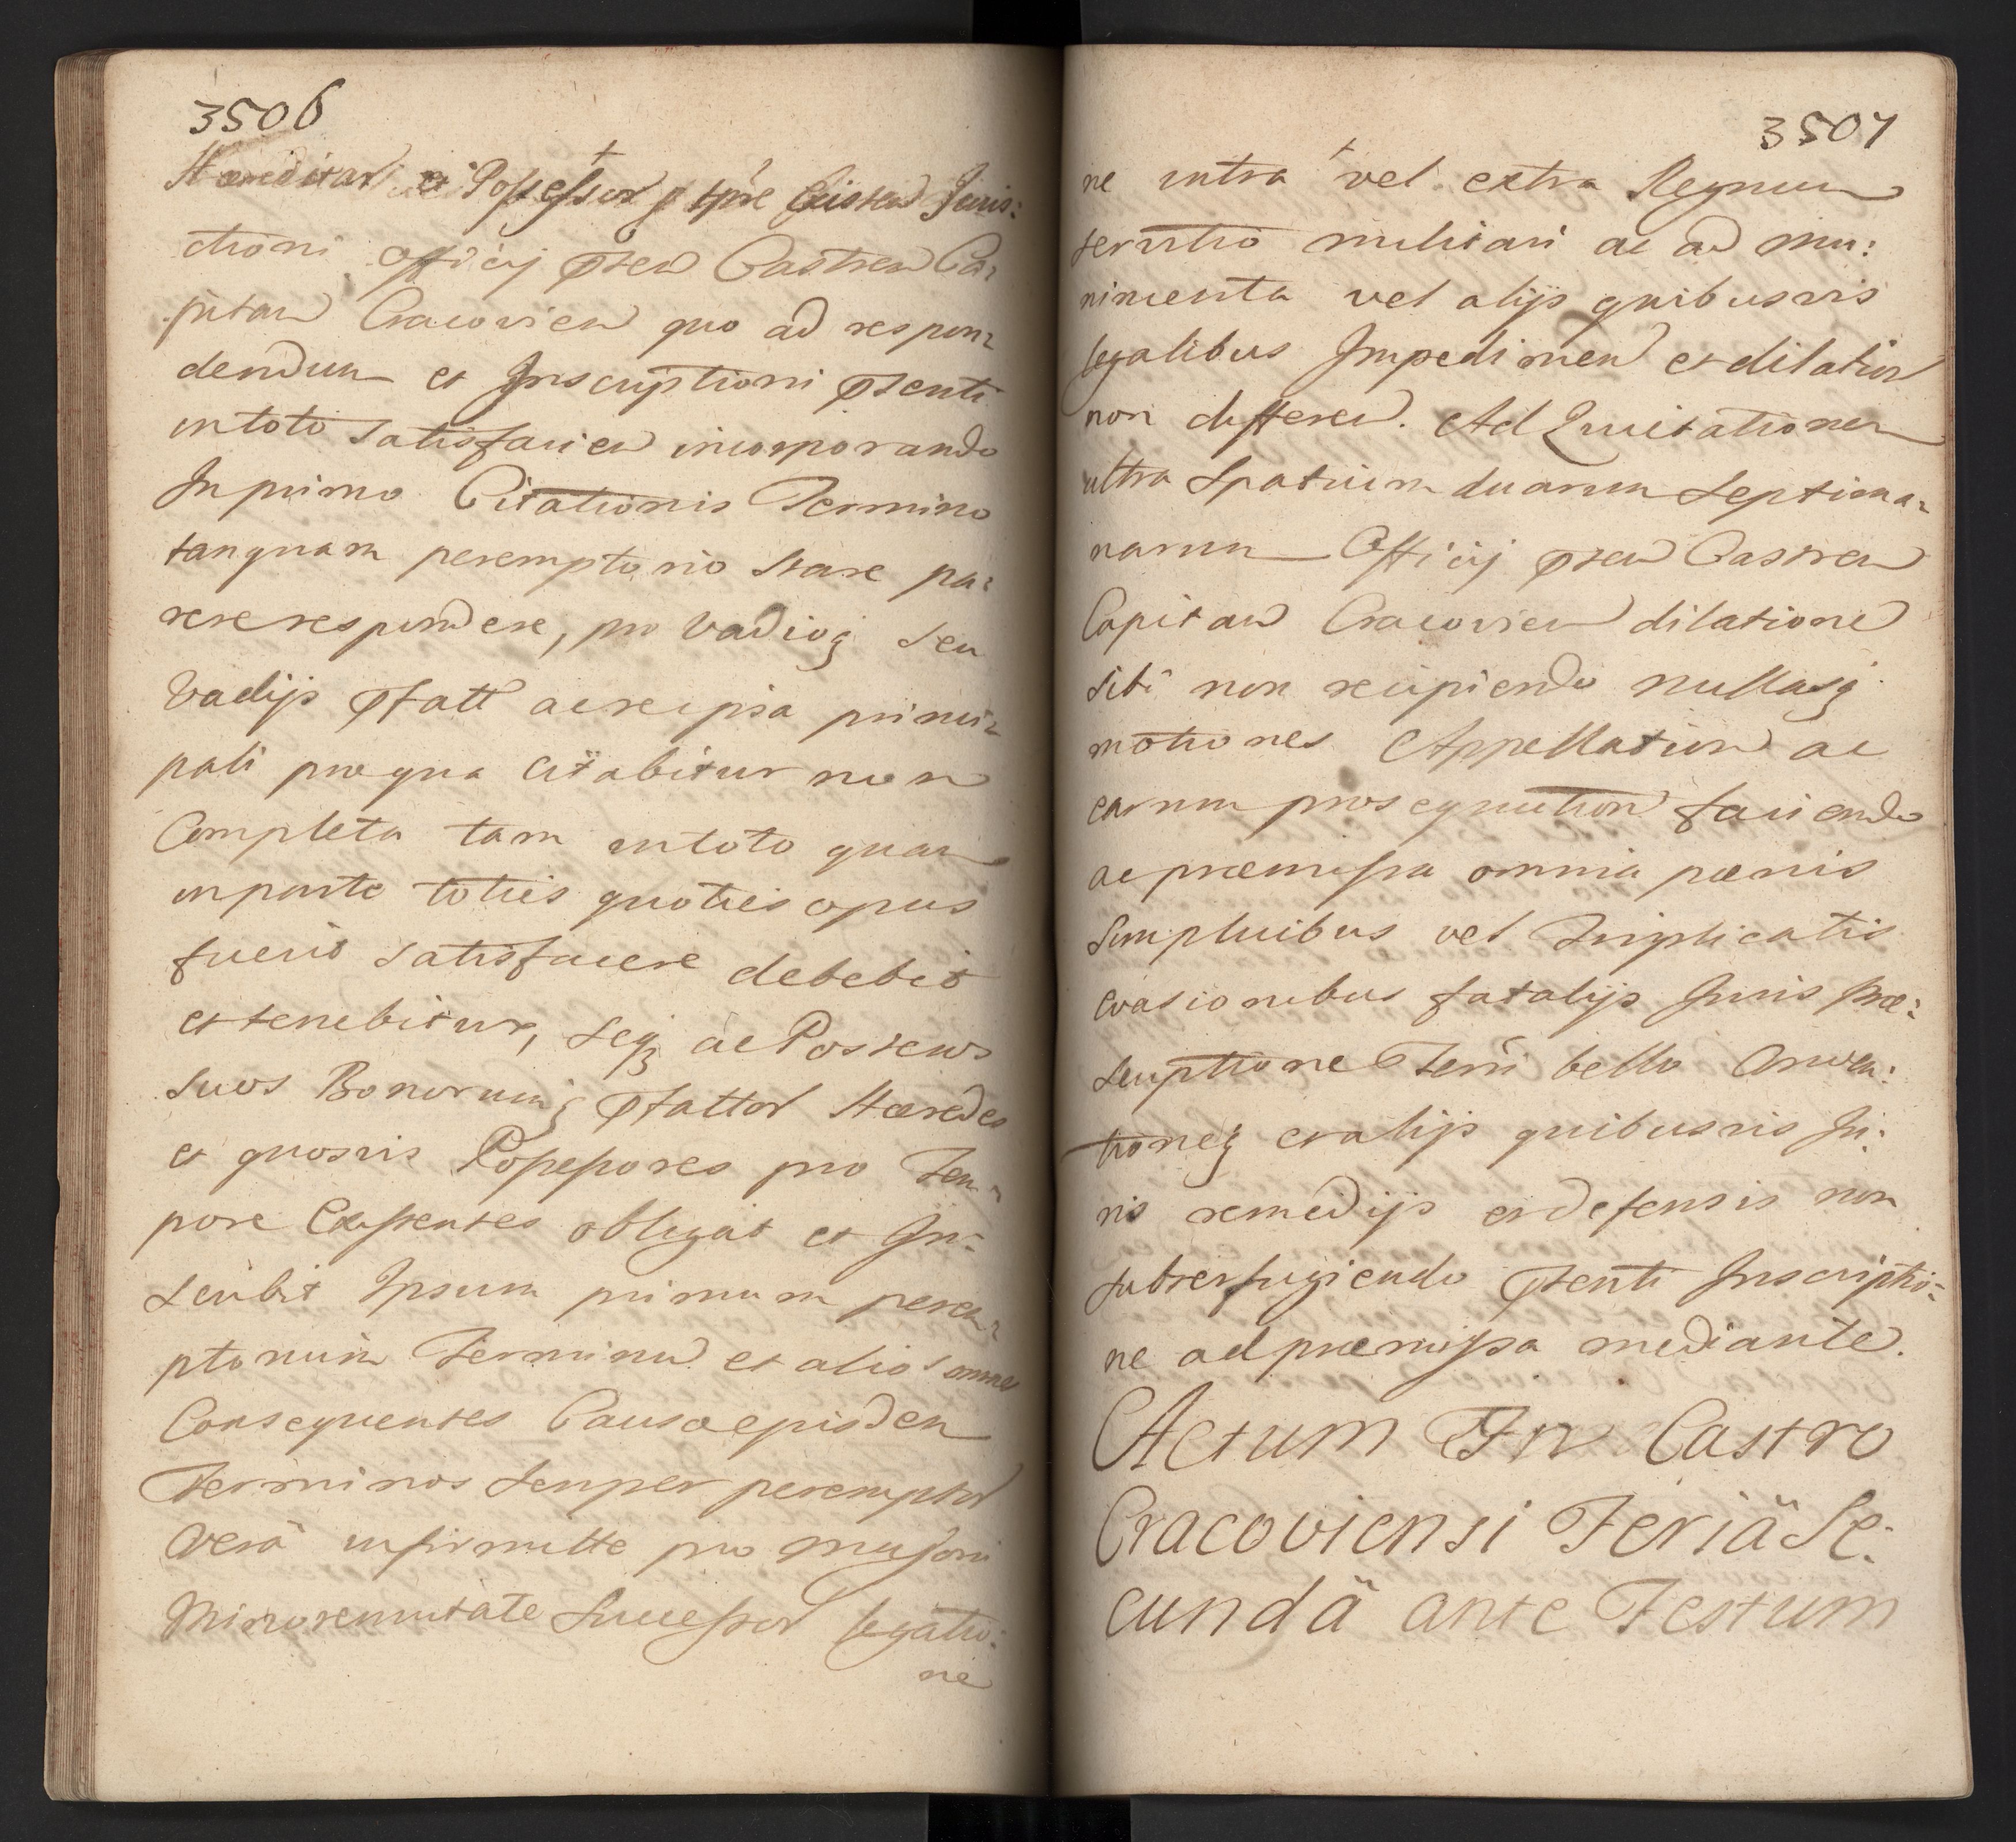 3506
Hæreditar et Possessor p tpre Existen Juris:
ctioni officij pnten Castren Ca:
pitan Cracovien quo ad respon:
dendum et Inscriptioni pnti
in toto satisfacien incorporando
In primo Citationis Termino
tanquam peremptorio stare pa:
rere respondere, pro Vadioq seu
Vadijs pfatt ac re ipsa princi:
pali pro qua citabitur non
Completa tam in toto quam
in parte toties quoties opus
fuerit satisfacere debebit
et tenebitur, seq ac Posteros
suos Bonorumq pfattor Hæredes
et quosvis Possessores pro Tem:
pore Existentes obligat et In:
scribit Ipsum primum perem:
ptorium Terminum et alios omnes
Consequentes Causæ ejusdem
Terminos semper peremptor
Verâ infirmitte pro majori
Minorennitate Successor legatio:
ne
3507
ne intra vel extra Regnum
servitio militari ac ad mu:
nimenta vel alijs quibusvis
legalibus Impedimen et dilation
non differen. Ad Quietationem
ultra Spatium duarum Septima:
narum Officij pnten Castren
Capitan Cracovien dilatione
sibi non recipiendo nullasq
motiones Appellation ac
earum prosequution faciendo
ac præmissa omnia pænis
simplicibus vel Triplicatis
evasionibus fatalijs Juris Præ:
scriptione Terri bello Conven:
tioneq et alijs quibusvis Ju:
ris remedijs et defensis non
subterfugiendo pnti Inscriptio:
ne ad præmissa mediante.
Actum In Castro
Cracoviensi Feriâ Se:
cundâ ante Festum